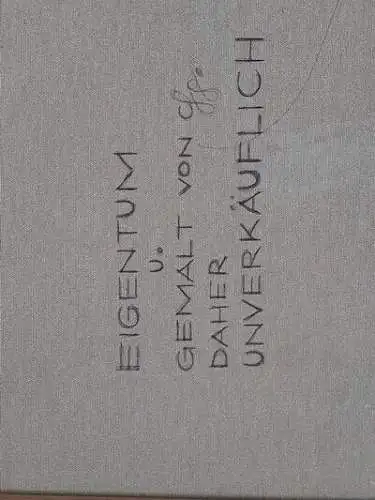 EIGENTUM
U.
GEMALT VON
DAHER
UNVERKÄUFLICH